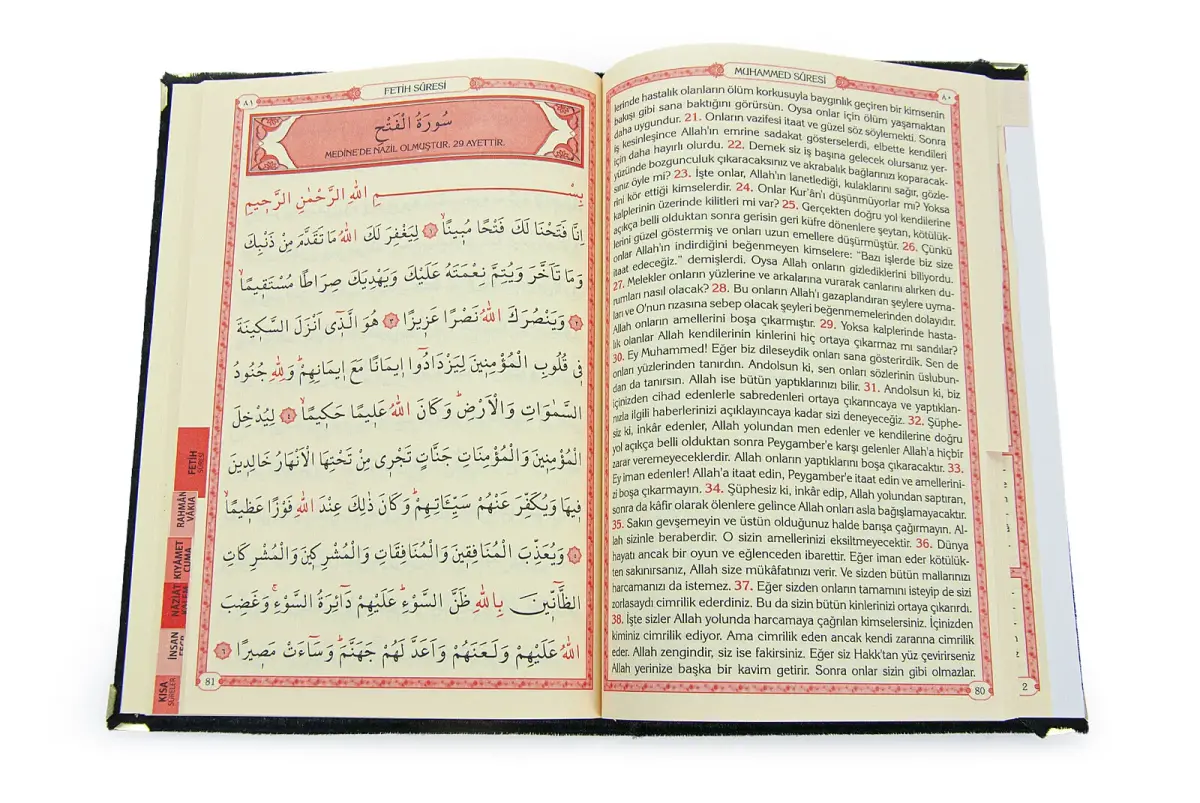 MUHAMMED SÛRESİ
٨٠
lerinde hastalık olanların ölüm korkusuyla baygınlık geçiren bir kimsenin
bakışı gibi sana baktığını görürsün. Oysa onlar için ölüm yaşamaktan
daha uygundur. 21. Onların vazifesi itaat ve güzel söz söylemekti. Sonra
iş kesinleşince Allah'ın emrine sadakat gösterselerdi, elbette kendileri
için daha hayırlı olurdu. 22. Demek siz iş başına gelecek olursanız yer-
yüzünde bozgunculuk çıkaracaksınız ve akrabalık bağlarınızı koparacak-
sınız öyle mi? 23. İşte onlar, Allah'ın lanetlediği, kulaklarını sağır, gözle-
rini kör ettiği kimselerdir. 24. Onlar Kur'ân'ı düşünmüyorlar mı? Yoksa
kalplerinin üzerinde kilitleri mi var? 25. Gerçekten doğru yol kendilerine
açıkça belli olduktan sonra gerisin geri küfre dönenlere şeytan, kötülük-
lerini güzel göstermiş ve onları uzun emellere düşürmüştür. 26. Çünkü
onlar Allah'ın indirdiğini beğenmeyen kimselere: "Bazı işlerde biz size
itaat edeceğiz." demişlerdi. Oysa Allah onların gizlediklerini biliyordu.
27. Melekler onların yüzlerine ve arkalarına vurarak canlarını alırken du-
rumları nasıl olacak? 28. Bu onların Allah'ı gazaplandıran şeylere uyma-
ları ve O'nun rızasına sebep olacak şeyleri beğenmemelerinden dolayıdır.
Allah onların amellerini boşa çıkarmıştır. 29. Yoksa kalplerinde hasta-
lık olanlar Allah kendilerinin kinlerini hiç ortaya çıkarmaz mı sandılar?
30. Ey Muhammed! Eğer biz dileseydik onları sana gösterirdik. Sen de
onları yüzlerinden tanırdın. Andolsun ki, sen onları sözlerinin üslubun-
dan da tanırsın. Allah ise bütün yaptıklarınızı bilir. 31. Andolsun ki, biz
içinizden cihad edenlerle sabredenleri ortaya çıkarıncaya ve yaptıkları-
nızla ilgili haberlerinizi açıklayıncaya kadar sizi deneyeceğiz. 32. Şüphe-
siz ki, inkâr edenler, Allah yolundan men edenler ve kendilerine doğru
yol açıkça belli olduktan sonra Peygamber'e karşı gelenler Allah'a hiçbir
zarar veremeyeceklerdir. Allah onların yaptıklarını boşa çıkaracaktır. 33.
Ey iman edenler! Allah'a itaat edin, Peygamber'e itaat edin ve amellerini-
zi boşa çıkarmayın. 34. Şüphesiz ki, inkâr edip, Allah yolundan saptıran,
sonra da kâfir olarak ölenlere gelince Allah onları asla bağışlamayacaktır.
35. Sakın gevşemeyin ve üstün olduğunuz halde barışa çağırmayın. Al-
lah sizinle beraberdir. O sizin amellerinizi eksiltmeyecektir. 36. Dünya
hayatı ancak bir oyun ve eğlenceden ibarettir. Eğer iman eder kötülük-
ten sakınırsanız, Allah size mükâfatınızı verir. Ve sizden bütün mallarınızı
harcamanızı da istemez. 37. Eğer sizden onların tamamını isteyip de sizi
zorlasaydı cimrilik ederdiniz. Bu da sizin bütün kinlerinizi ortaya çıkarırdı.
38. İşte sizler Allah yolunda harcamaya çağrılan kimselersiniz. İçinizden
kiminiz cimrilik ediyor. Ama cimrilik eden ancak kendi zararına cimrilik
eder. Allah zengindir, siz ise fakirsiniz. Eğer siz Hakk'tan yüz çevirirseniz
Allah yerinize başka bir kavim getirir. Sonra onlar sizin gibi olmazlar.
80
2
FETİH SÛRESİ
٨١
سُورَةُ الْفَتْحِ
MEDİNE'DE NAZİL OLMUŞTUR. 29 AYETTİR.
بِسْمِ اللهِ الرَّحْمٰنِ الرَّحٖيمِ
اِنَّا فَتَحْنَا لَكَ فَتْحًا مُبٖينًاۙ ﴿١﴾ لِيَغْفِرَ لَكَ اللهُ مَا تَقَدَّمَ مِنْ ذَنْبِكَ
وَمَا تَاَخَّرَ وَيُتِمَّ نِعْمَتَهُ عَلَيْكَ وَيَهْدِيَكَ صِرَاطًا مُسْتَقٖيمًاۙ
﴿٢﴾ وَيَنْصُرَكَ اللهُ نَصْرًا عَزٖيزًا ﴿٣﴾ هُوَ الَّذٖٓى اَنْزَلَ السَّكٖينَةَ
فٖى قُلُوبِ الْمُؤْمِنٖينَ لِيَزْدَادُٓوا اٖيمَانًا مَعَ اٖيمَانِهِمْۜ وَلِلّٰهِ جُنُودُ
السَّمٰوَاتِ وَالْاَرْضِۜ وَكَانَ اللهُ عَلٖيمًا حَكٖيمًاۙ ﴿٤﴾ لِيُدْخِلَ
الْمُؤْمِنٖينَ وَالْمُؤْمِنَاتِ جَنَّاتٍ تَجْرٖى مِنْ تَحْتِهَا الْاَنْهَارُ خَالِدٖينَ
فٖيهَا وَيُكَفِّرَ عَنْهُمْ سَيِّـَٔاتِهِمْۜ وَكَانَ ذٰلِكَ عِنْدَ اللهِ فَوْزًا عَظٖيمًاۙ
﴿٥﴾ وَيُعَذِّبَ الْمُنَافِقٖينَ وَالْمُنَافِقَاتِ وَالْمُشْرِكٖينَ وَالْمُشْرِكَاتِ
الظَّٓانّٖينَ بِاللهِ ظَنَّ السَّوْءِۜ عَلَيْهِمْ دَٓائِرَةُ السَّوْءِۚ وَغَضِبَ
اللهُ عَلَيْهِمْ وَلَعَنَهُمْ وَاَعَدَّ لَهُمْ جَهَنَّمَۜ وَسَٓاءَتْ مَصٖيرًا ﴿٦﴾
81
FETİH
SÛRESİ
RAHMÂN
VÂKIA
KIYÂMET
CUMA
NÂZİÂT
İNSAN
KISA
SÛRELER